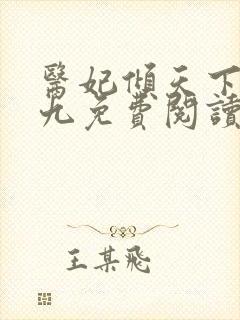 醫妃傾天下
九免費閱讀
王某飛